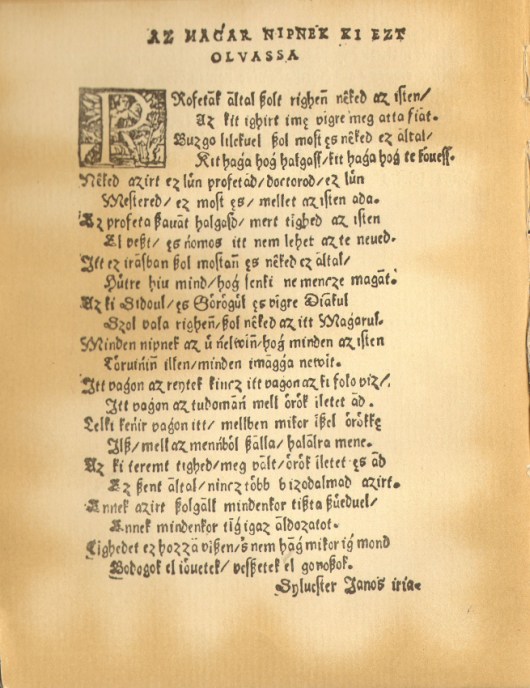 AZ MAGAR NIPNEK KI EZT
OLVASSA
PRofeták által ßolt righen̄ nȇked az isten/
Az kit ighirt imę vigre meg atta fiát.
Buzgo lilekuel ßol most ęs nȇked ez által/
Kit haǵa hoǵ halgass/ kit haǵa hoǵ te kouess.
Nȇked azirt ez lűn profetád/ doctorod/ ez lűn
Mestered/ ez most ęs/ mellet az isten ada.
Ez profeta ßauát halgasd/ mert tighed az isten
El veßt/ ęs ńomos itt nem lehet az te neued.
Itt ez irásban ßol mostan̄ es nȇked ez által/
Hűtre hiu mind/ hoǵ senki ne mencze maǵát.
Az ki Sidoul/ ęs Gőrőgűl ęs vigre Diákul
Szol vala righen̄/ ßol nȇked az itt Maǵarul.
Minden nipnek az ű ńelwin̄/ hoǵ minden az isten
Tőruińin̄ illen/ minden imáǵǵa newit.
Itt vaǵon az reytek kincz itt vaǵon az ki folo viz/
Itt vaǵon az tudomán̄ mell őrők iletet ád.
Lelki keńir vaǵon itt/ mellben mikor ißel őrőkkę
Ilß/ mell az menńből ßálla/ halálra mene.
Az ki teremt tighed/ meg vált/ őrők iletet ęs ád
Ez ßent által/ nincz tőbb bizodalmad azirt.
Annek azirt ßolgált mindenkor tißta ßűeduel/
Ennek mindenkor tiǵ igaz áldozatot.
Tighedet ez hozzá vißen/ s nem háǵ mikor iǵ mond
Bodogok el iőuetek/ veßßetek el gonoßok.
Syluester Janos iria